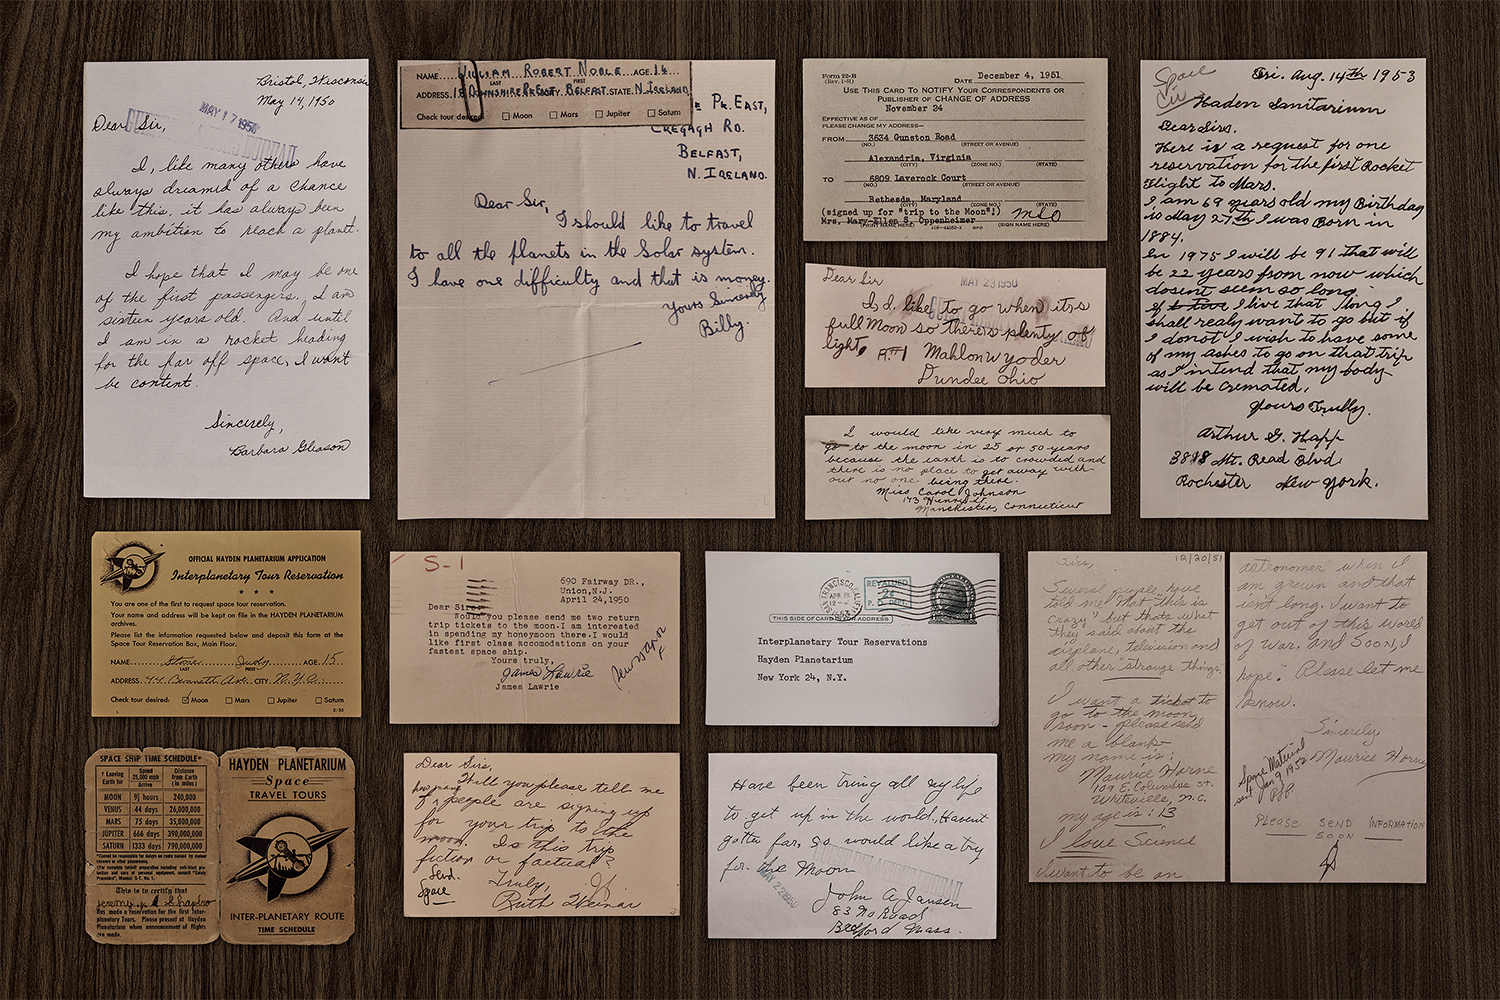 Bristol, Wisconsin
May 14, 1950
MAY 17 1950
Dear Sir,
I, like many others have
always dreamed of a chance
like this, it has always been
my ambition to reach a planet.
I hope that I may be one
of the first passengers. I am
sixteen years old. And until
I am in a rocket heading
for the far off space, I wont
be content.
Sincerely,
Barbara Gleason
NAME WILLIAM ROBERT NOBLE AGE 14
LAST FIRST
ADDRESS 18 DOWNSHIRE PK EAST CITY BELFAST STATE N. IRELAND
Check tour desired: Moon Mars Jupiter Saturn
E PK. EAST,
CREGAGH RD.
BELFAST,
N. IRELAND.
Dear Sir,
I should like to travel
to all the planets in the Solar system.
I have one difficulty and that is money.
Yours Sincerely
Billy.
Form 22-B
(Rev. 1-51)
DATE December 4, 1951
USE THIS CARD TO NOTIFY YOUR CORRESPONDENTS OR
PUBLISHER OF CHANGE OF ADDRESS
November 24
EFFECTIVE AS OF
PLEASE CHANGE MY ADDRESS—
FROM 3634 Gunston Road
(NO.) (STREET OR AVENUE)
Alexandria, Virginia
(CITY) (ZONE NO.) (STATE)
TO 6809 Laverock Court
(NO.) (STREET OR AVENUE)
Bethesda, Maryland
(CITY) (ZONE NO.) (STATE)
(signed up for "trip to the Moon"!) meo
Mrs. Mary-Ellen S. Oppenheimer
(PRINT NAME HERE) GPO (SIGN NAME HERE)
Dear Sir
MAY 23 1950
I'd like to go when its
full Moon so there's plenty of
light, R#1 Mahlon W Yoder
Dundee Ohio
I would like very much to
go to the moon in 25 or 50 years
because the earth is to crowded and
there is no place to get away with-
out no one being there.
Miss Carol Johnson
173 Henry St.
Manchister, Connecticut
Space
Cir
Fri. Aug. 14th 1953
Haden Sanitarium
Dear Sirs.
Here is a request for one
reservation for the first Rocket
Flight to Mars.
I am 69 years old my Birthday
is May 27th I was Born in
1884.
In 1975 I will be 91 that will
be 22 years from now which
dosent seem so long
if I live that long I
shall realy want to go but if
I donot I wish to have some
of my ashes to go on that trip
as I intend that my body
will be cremated.
Yours Trully.
Arthur G. Happ
3818 Mt. Read Blvd.
Rochester New York.
OFFICIAL HAYDEN PLANETARIUM APPLICATION
Interplanetary Tour Reservation
You are one of the first to request space tour reservation.
Your name and address will be kept on file in the HAYDEN PLANETARIUM
archives.
Please list the information requested below and deposit this form at the
Space Tour Reservation Box, Main Floor.
NAME Stone Judy AGE 15
LAST FIRST
ADDRESS 44 Bennett Ave. CITY N.Y.C.
Check tour desired: Moon Mars Jupiter Saturn
3/50
S-1
690 Fairway DR.,
Union,N.J.
April 24,1950
Dear Sirs:
Would you please send me two return
trip tickets to the moon.I am interested
in spending my honeymoon there.I would
like first class accomodations on your
fastest space ship.
Yours truly,
James Lawrie
James Lawrie
SAN FRANCISCO, CALIF.
APR
1953
REVALUED
2¢
P. O. DEPT.
THIS SIDE OF CARD IS FOR ADDRESS
Interplanetary Tour Reservations
Hayden Planetarium
New York 24, N.Y.
12/20/51
Sirs,
Several people have
told me that this is
crazy", but thats what
they said about the
airplane, television and
all other "strange things".
I want a ticket to
go to the moon
soon - please send
me a blank
my name is:
Maurice Horne
109 E. Columbus St.
Whiteville, N.C.
my age is: 13
I love Science
I want to be an
astronomer when I
am grown and that
isn't long. I want to
get out of this world
of war, and soon, I
hope. Please let me
know.
Sincerely,
Maurice Horne
Space Material
sent Jan 9 1952
PLEASE SEND INFORMATION
SOON
SPACE SHIP TIME SCHEDULE*
† Leaving Earth for Speed 25,000 mph Arrive Distance from Earth (in miles)
MOON 9½ hours 240,000
VENUS 44 days 26,000,000
MARS 75 days 35,000,000
JUPITER 666 days 390,000,000
SATURN 1333 days 790,000,000
*Cannot be responsible for delays en route caused by meteor
showers or other phenomena.
†For complete takeoff preparation including anti-blast pro-
tection and care of personal equipment, consult "Safety
Procedure", Manual S-T, No. 1.
This is to certify that
Jeremy A Shapiro
Has made a reservation for the first Inter-
planetary Tours. Please present at Hayden
Planetarium when announcement of flights
are made.
HAYDEN PLANETARIUM
Space
TRAVEL TOURS
INTER-PLANETARY ROUTE
TIME SCHEDULE
Dear Sirs,
Will you please tell me
how many
people are signing up
for your trip to the
moon. Is this trip
fiction or factual?
Truly,
Ruth Weinar
Send.
Space
Have been trying all my life
to get up in the world, Havent
gotten far, so would like a try
for the Moon
MAY 22 1950
John A Jansen
83 No Road
Bedford Mass.